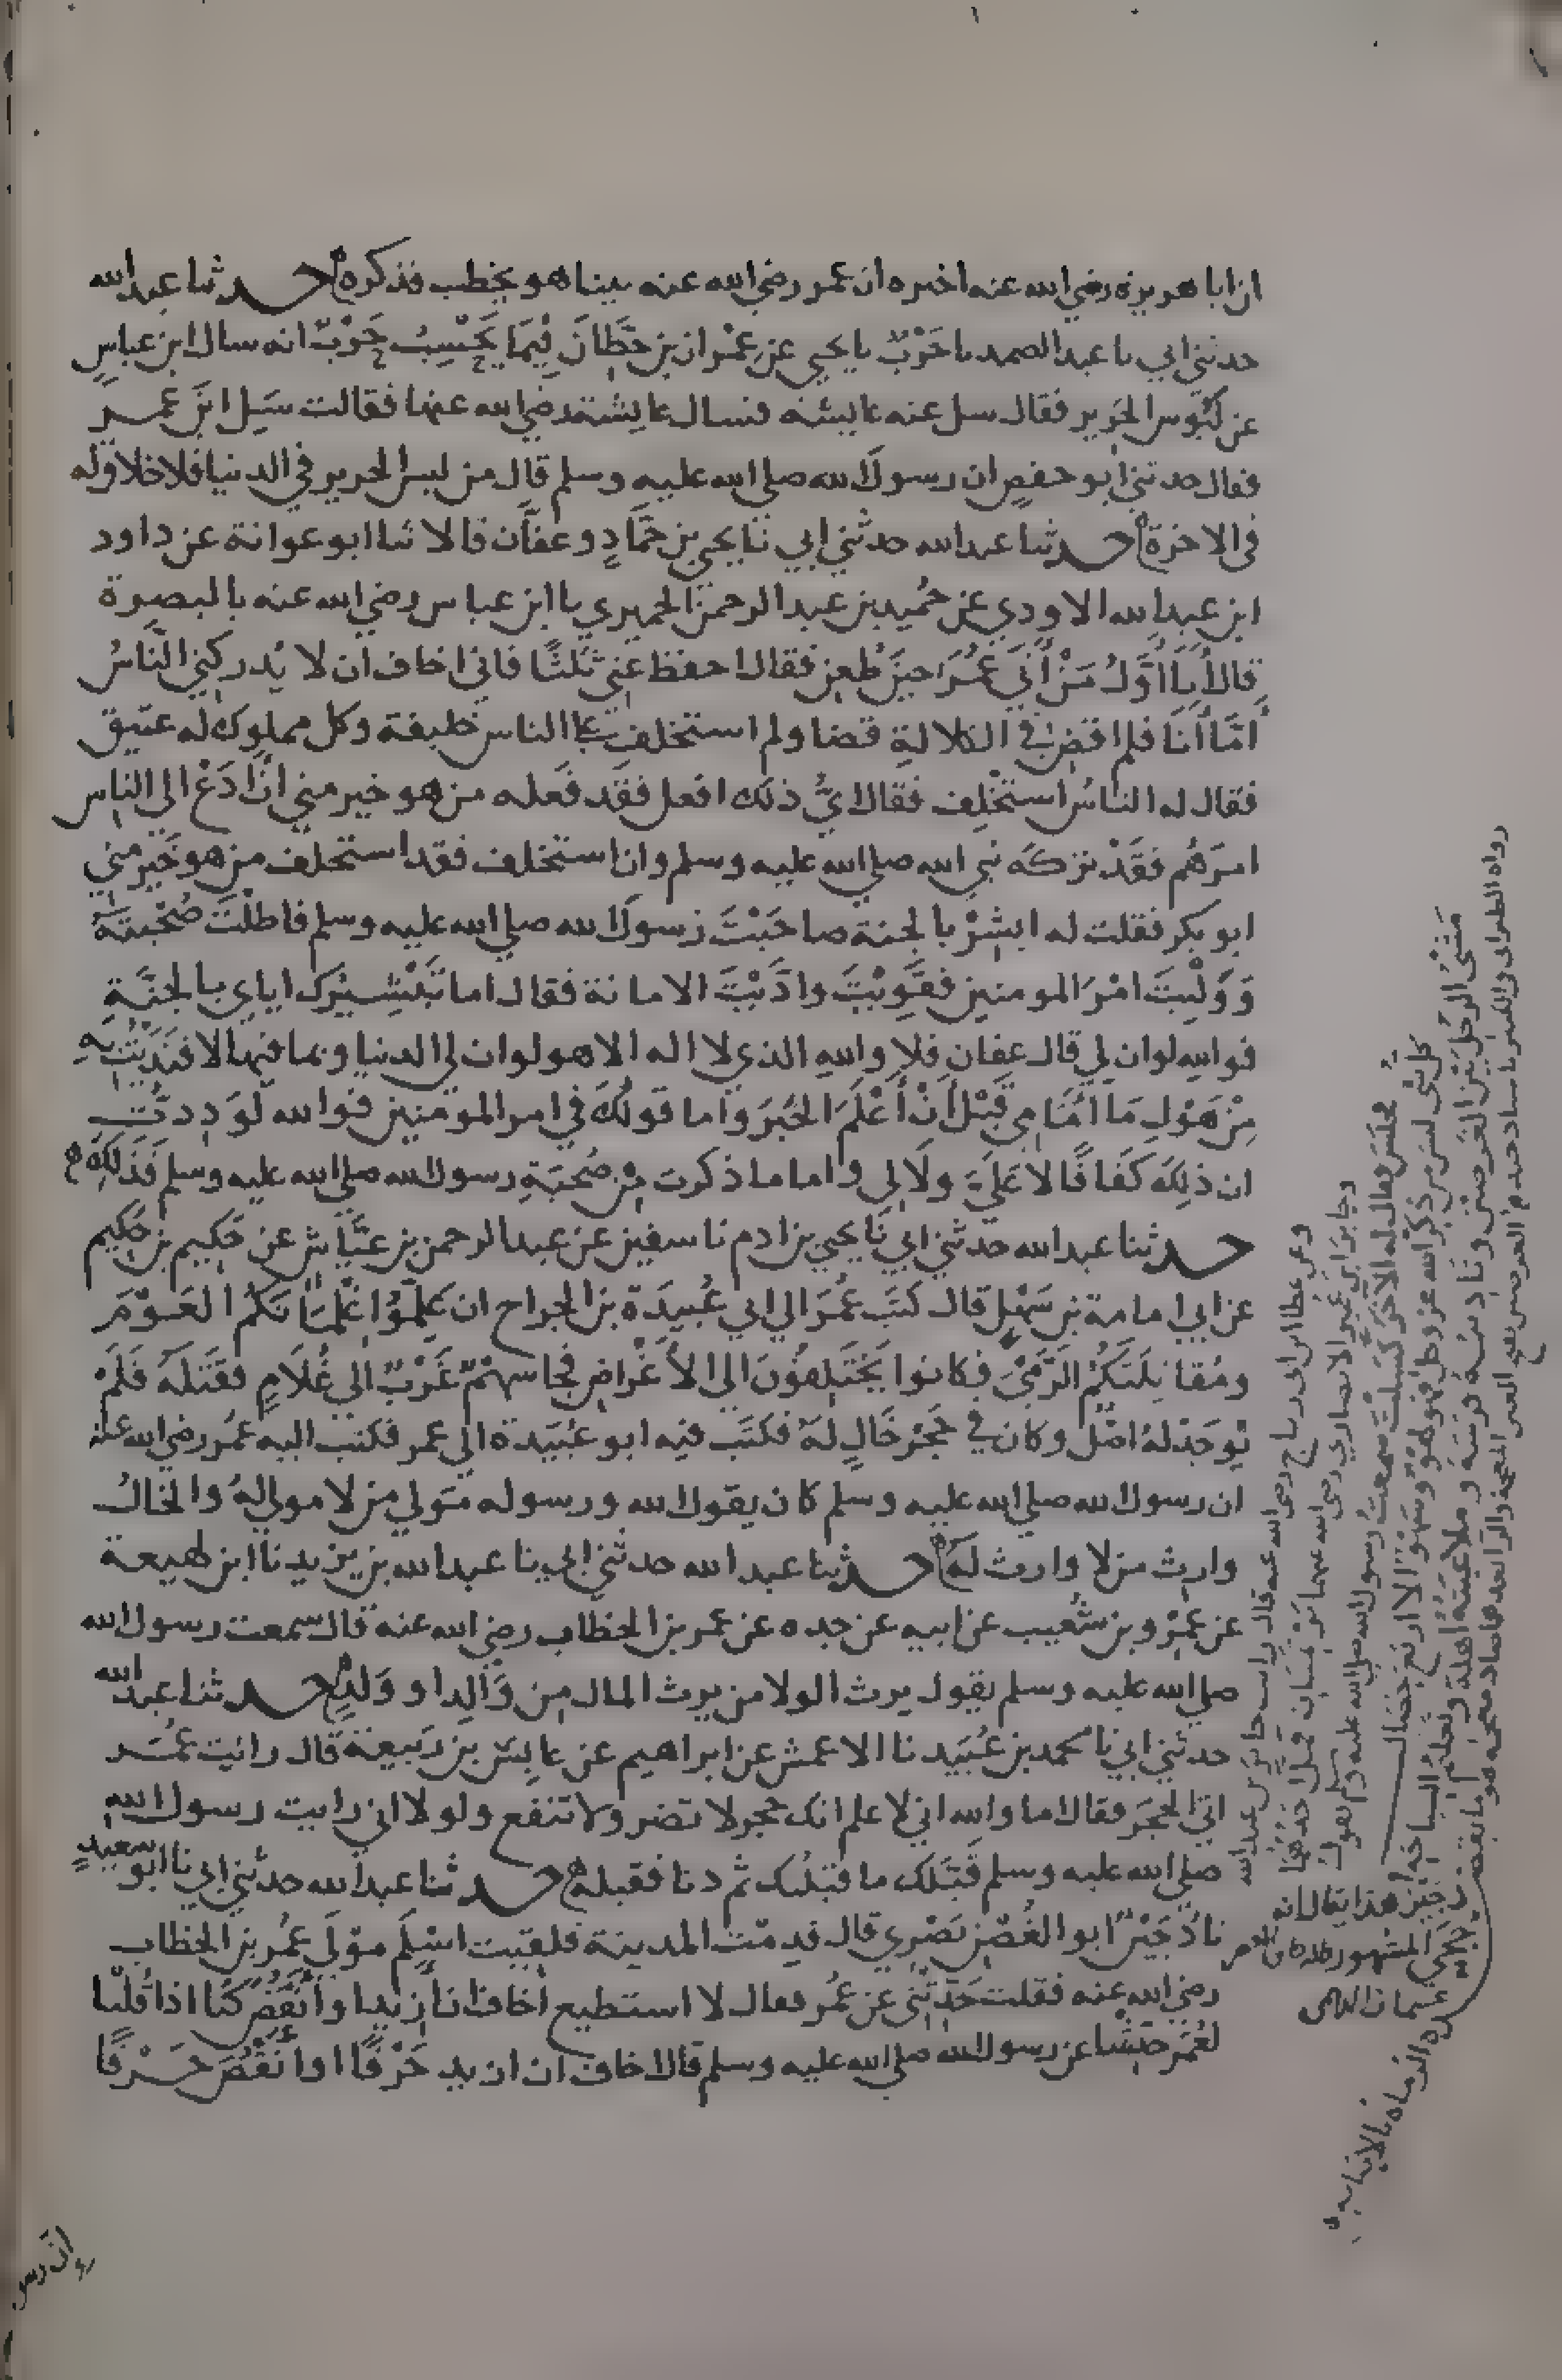 ان ابا هريرة رضي الله عنه اخبره ان عمر رضي الله عنه بينا هو يخطب فذكره حدثنا عبد الله
حدثني ابي نا عبد الصمد نا حَرْبٌ نا يحيى عن عِمْران بن حِطَّانَ فِيمَا يَحْسِبُ حَرْبٌ انه سال ابن عباسٍ
عن لَبُوس الحَرير فقال سل عنه عايشة فسال عايشة رضي الله عنها فقالت سَلِ ابنَ عمر
فقال حدثني ابو حفصٍ ان رسول الله صلى الله عليه وسلم قال من لبس الحرير في الدنيا فلا خلاق له
في الاخرة حدثنا عبد الله حدثني ابي نا يحيى بن حَمَّادٍ وعفَّان قالا ثنا ابو عوانة عن داود
ابن عبد الله الاودي عن حُميد بن عبد الرحمن الحميري نا ابن عباس رضي الله عنه بالبصرة
قال أَنَا أَوَّلُ مَنْ أَتَى عُمَرَ حينَ طُعِن فقال احفظ عني ثَلثًا فاني اخاف ان لا يُدركني الناسُ
أَمَّا أَنَا فلم اقضِ في الكلالةِ قضا ولم استخلف على الناس خليفة وكل مملوك له عتيق
فقال له الناسُ استخْلِف فقال ايَّ ذلك افعل فقَد فَعله من هو خير مني ان اَدَعْ الى الناس
امرَهُم فقَدْ تركَه نبي الله صلى الله عليه وسلم وان استخلف فقد استخلف من هو خَير مني
ابو بكر فقلت له ابشِرْ بالجنة صاحَبْتَ رسولَ الله صلى الله عليه وسلم فاطلْتَ صُحْبتَهُ
وَوَلِّيتَ امْرَ المومنين فقَوِيْتَ وادَّيْتَ الامانة فقال اما تَبْشِيْرُك اياي بالجنَّةِ
فوالله لو ان لي قال عفان فلا واللهِ الذي لا اله الا هو لو ان لي الدنيا وبما فيها لافتَدَيْتُ به
مِنْ هَوْلِ مَا أَمَامي قَبْلَ أَنْ أَعْلَمَ الخَبَرَ واما قولُكَ في امر المومنين فوالله لَوَدِدتُ
ان ذلِكَ كَفَافًا لا عَلَيَّ ولَا لي واما ما ذكرت مِن صُحبَةِ رسول الله صلى الله عليه وسلم فَذَلِكَ
حدثنا عبد الله حدثني ابي نا يحيى بن ادم نا سفين عن عبد الرحمن بن عيَّاش عن حَكِيم بن حَكِيم
عن ابي امامة بن سَهْل قال كتَب عُمَرَ الى ابي عُبيدَة بن الجراح ان عَلِّمُوا غِلْمَانَكُم العَوْمَ
ومُقَاتِلَتَكُم الرَّمْيَ فكانوا يَخْتَلِفُونَ الى الأَغْرَاضِ فجا سهْمٌ غَرْبٌ الى غُلَامٍ فقَتَلَهُ فَلَمْ
يُوجَدْ لهُ اصْل وكان في حَجْرِ خَالٍ لَهُ فكتَب فيه ابو عُبَيَدة الى عمر فكتب اليه عمُر رضي الله عنه
ان رسول الله صلى الله عليه وسلم كان يقول الله ورسوله مَولي من لا مولى لهُ والخالُ
وارث من لا وارث لَهُ حدثنا عبد الله حدثني ابي نا عبد الله بن يزيد نا ابن لهيعة
عن عَمْرو بن شُعيب عن ابيه عن جده عن عمر بن الخطاب رضي الله عنه قال سمعت رسول الله
صلى الله عليه وسلم يقول يرث الولا من يرث المال مِن وَالِد او وَلدٍ حدثنا عبد الله
حدثني ابي نا محمد بن عُبَيد نا الاعمش عن ابراهيم عن عابِس بن رَبيعة قال رايت عُمَر
اتى الحجَر فقال اما والله اني لاعلم انك حجر لا تضر ولا تنفع ولولا اني رايت رسول الله
صلى الله عليه وسلم قَبَّلك ما قبَّلتك ثم دنا فقبله حدثنا عبد الله حدثني ابي نا ابو سعيدٍ
نا دُجَيْنٌ ابو الغُصْن بَصْري قال قدِمْت المدينة فلقيت اسْلَم مَوْلَى عُمُر بن الخطاب
رضي الله عنه فقلت حَدِّثْنِي عن عُمر فقال لا استطيع اخاف ان أَزيدا وأَنْقُصَ كنا اذا قُلنا
لعُمَر حدِّثْنا عن رسول الله صلى الله عليه وسلم قال اخاف ان ازيد حَرْفًا او أَنْقُصَ حَرْفًا
وعن عطا ابن ابي رباح رضي الله عنه قال رايت جابر بن عبد الله
وجابر ابن عُمير الانصاري رضي الله عنهما يرتميان فمل احدهما
مجلس فقال له الآخر كسلت سمعت رسول الله صلى الله عليه وسلم يقول
كل شي ليس من ذكر الله عز وجل فهو لهو وسَهْو الا اربع خصال
مَشْيُ الرجل بين الغرضين وتَاديبُه فرسَهُ وملاعبته اهلَهُ وتعلّم السباحة
رواه الطبراني في الكبير باسناد جيد
دجين هذا يقال انه
جحي المشهور